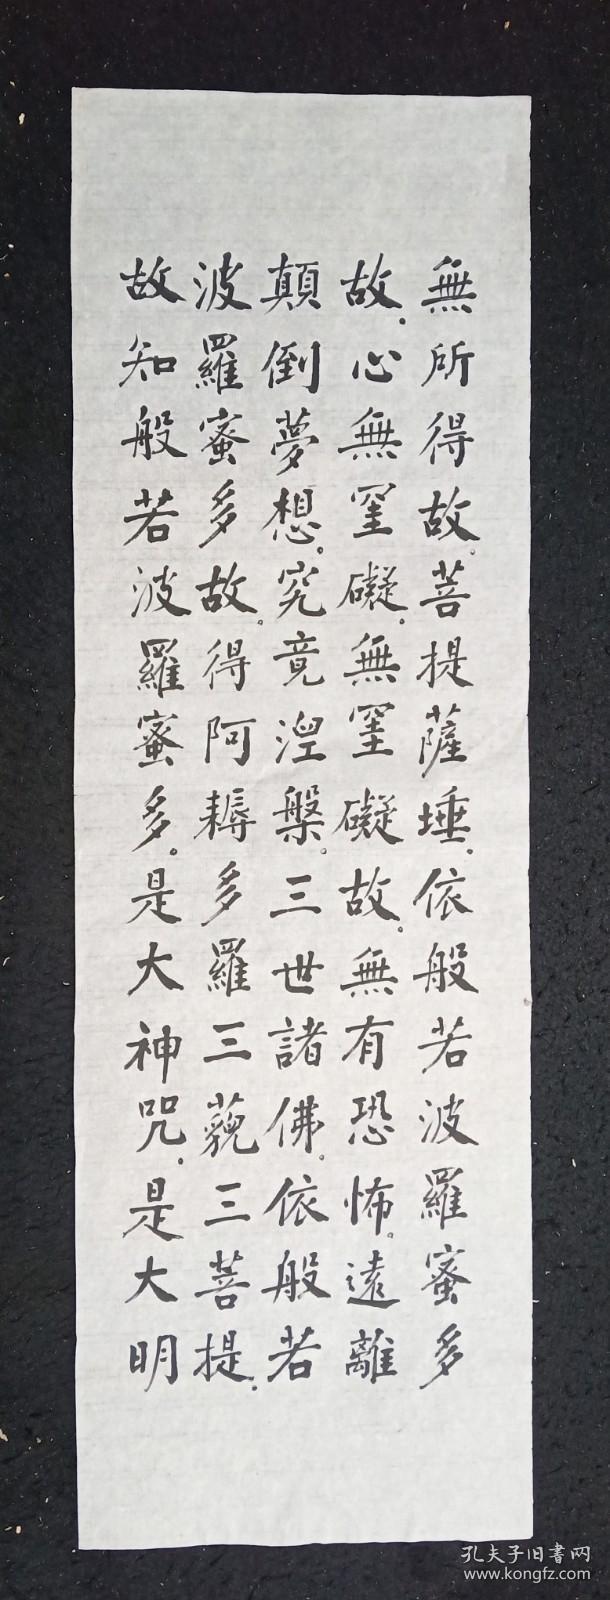 無所得故。菩提薩埵。依般若波羅蜜多
故。心無罣礙。無罣礙故。無有恐怖。遠離
顛倒夢想。究竟涅槃。三世諸佛。依般若
波羅蜜多故。得阿耨多羅三藐三菩提。
故知般若波羅蜜多。是大神咒。是大明
孔夫子旧書网
www.kongfz.com